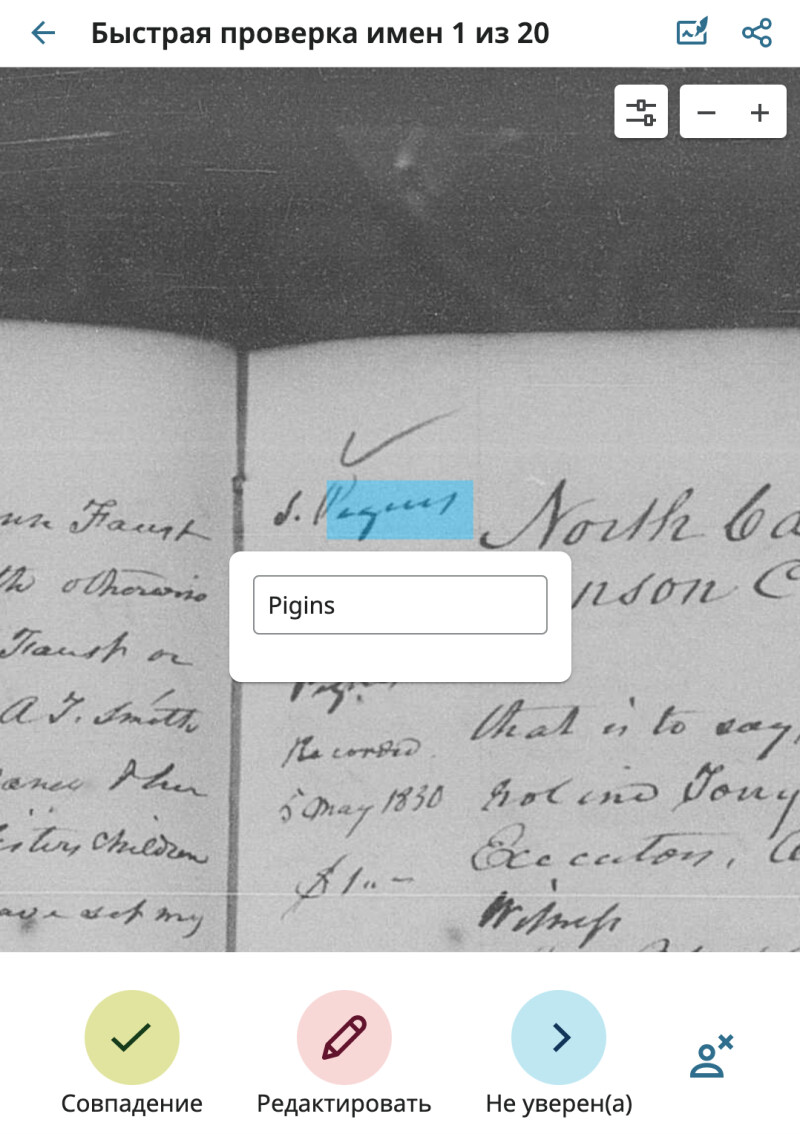 Быстрая проверка имен 1 из 20
Faust
th otherwise
Faust or
A T. Smith
children
ave set my
S. Pigins
North Ca
Pigins
nson C
that is to say,
Recorded
5 May 1830
$1..-
Executors,
Witness
Совпадение
Редактировать
Не уверен(а)